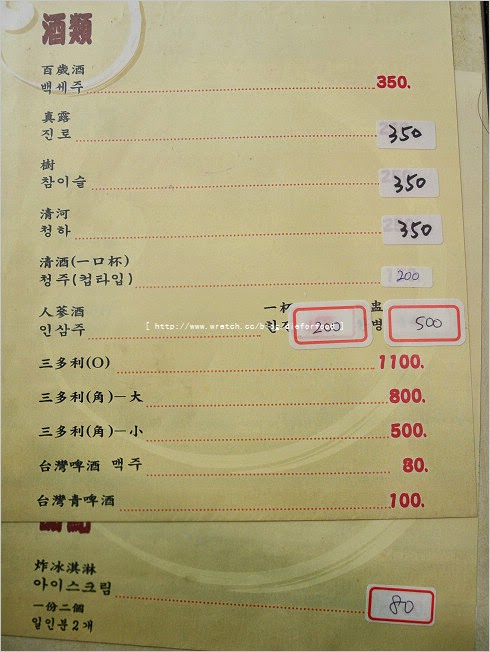 酒類
百歲酒
백세주 350.
真露
진로 350
樹
참이슬 350
清河
청하 350
清酒(一口杯)
청주(컵타입) 200
人蔘酒 一杯
인삼주 200 병 500
三多利(O) 1100.
三多利(角)一大 800.
三多利(角)一小 500.
台灣啤酒 맥주 80.
台灣青啤酒 100.
炸冰淇淋
아이스크림 80
一份二個
일인분2개